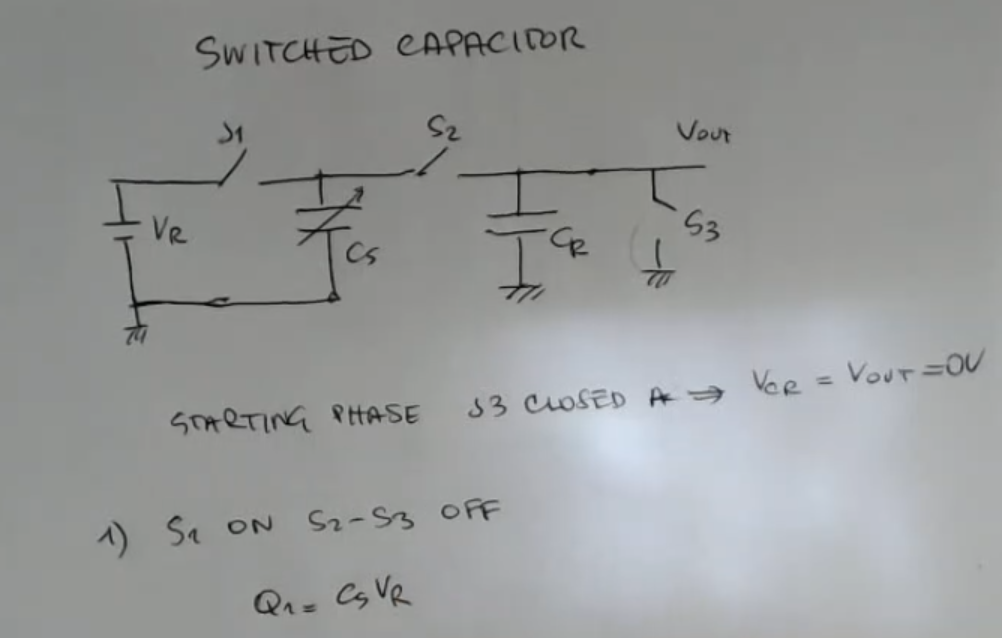 SWITCHED CAPACITOR
S1 S2 VOUT
VR CS CR S3
STARTING PHASE S3 CLOSED A ⇒ VCR = VOUT = 0V
1) S1 ON S2-S3 OFF
Q1 = CS VR